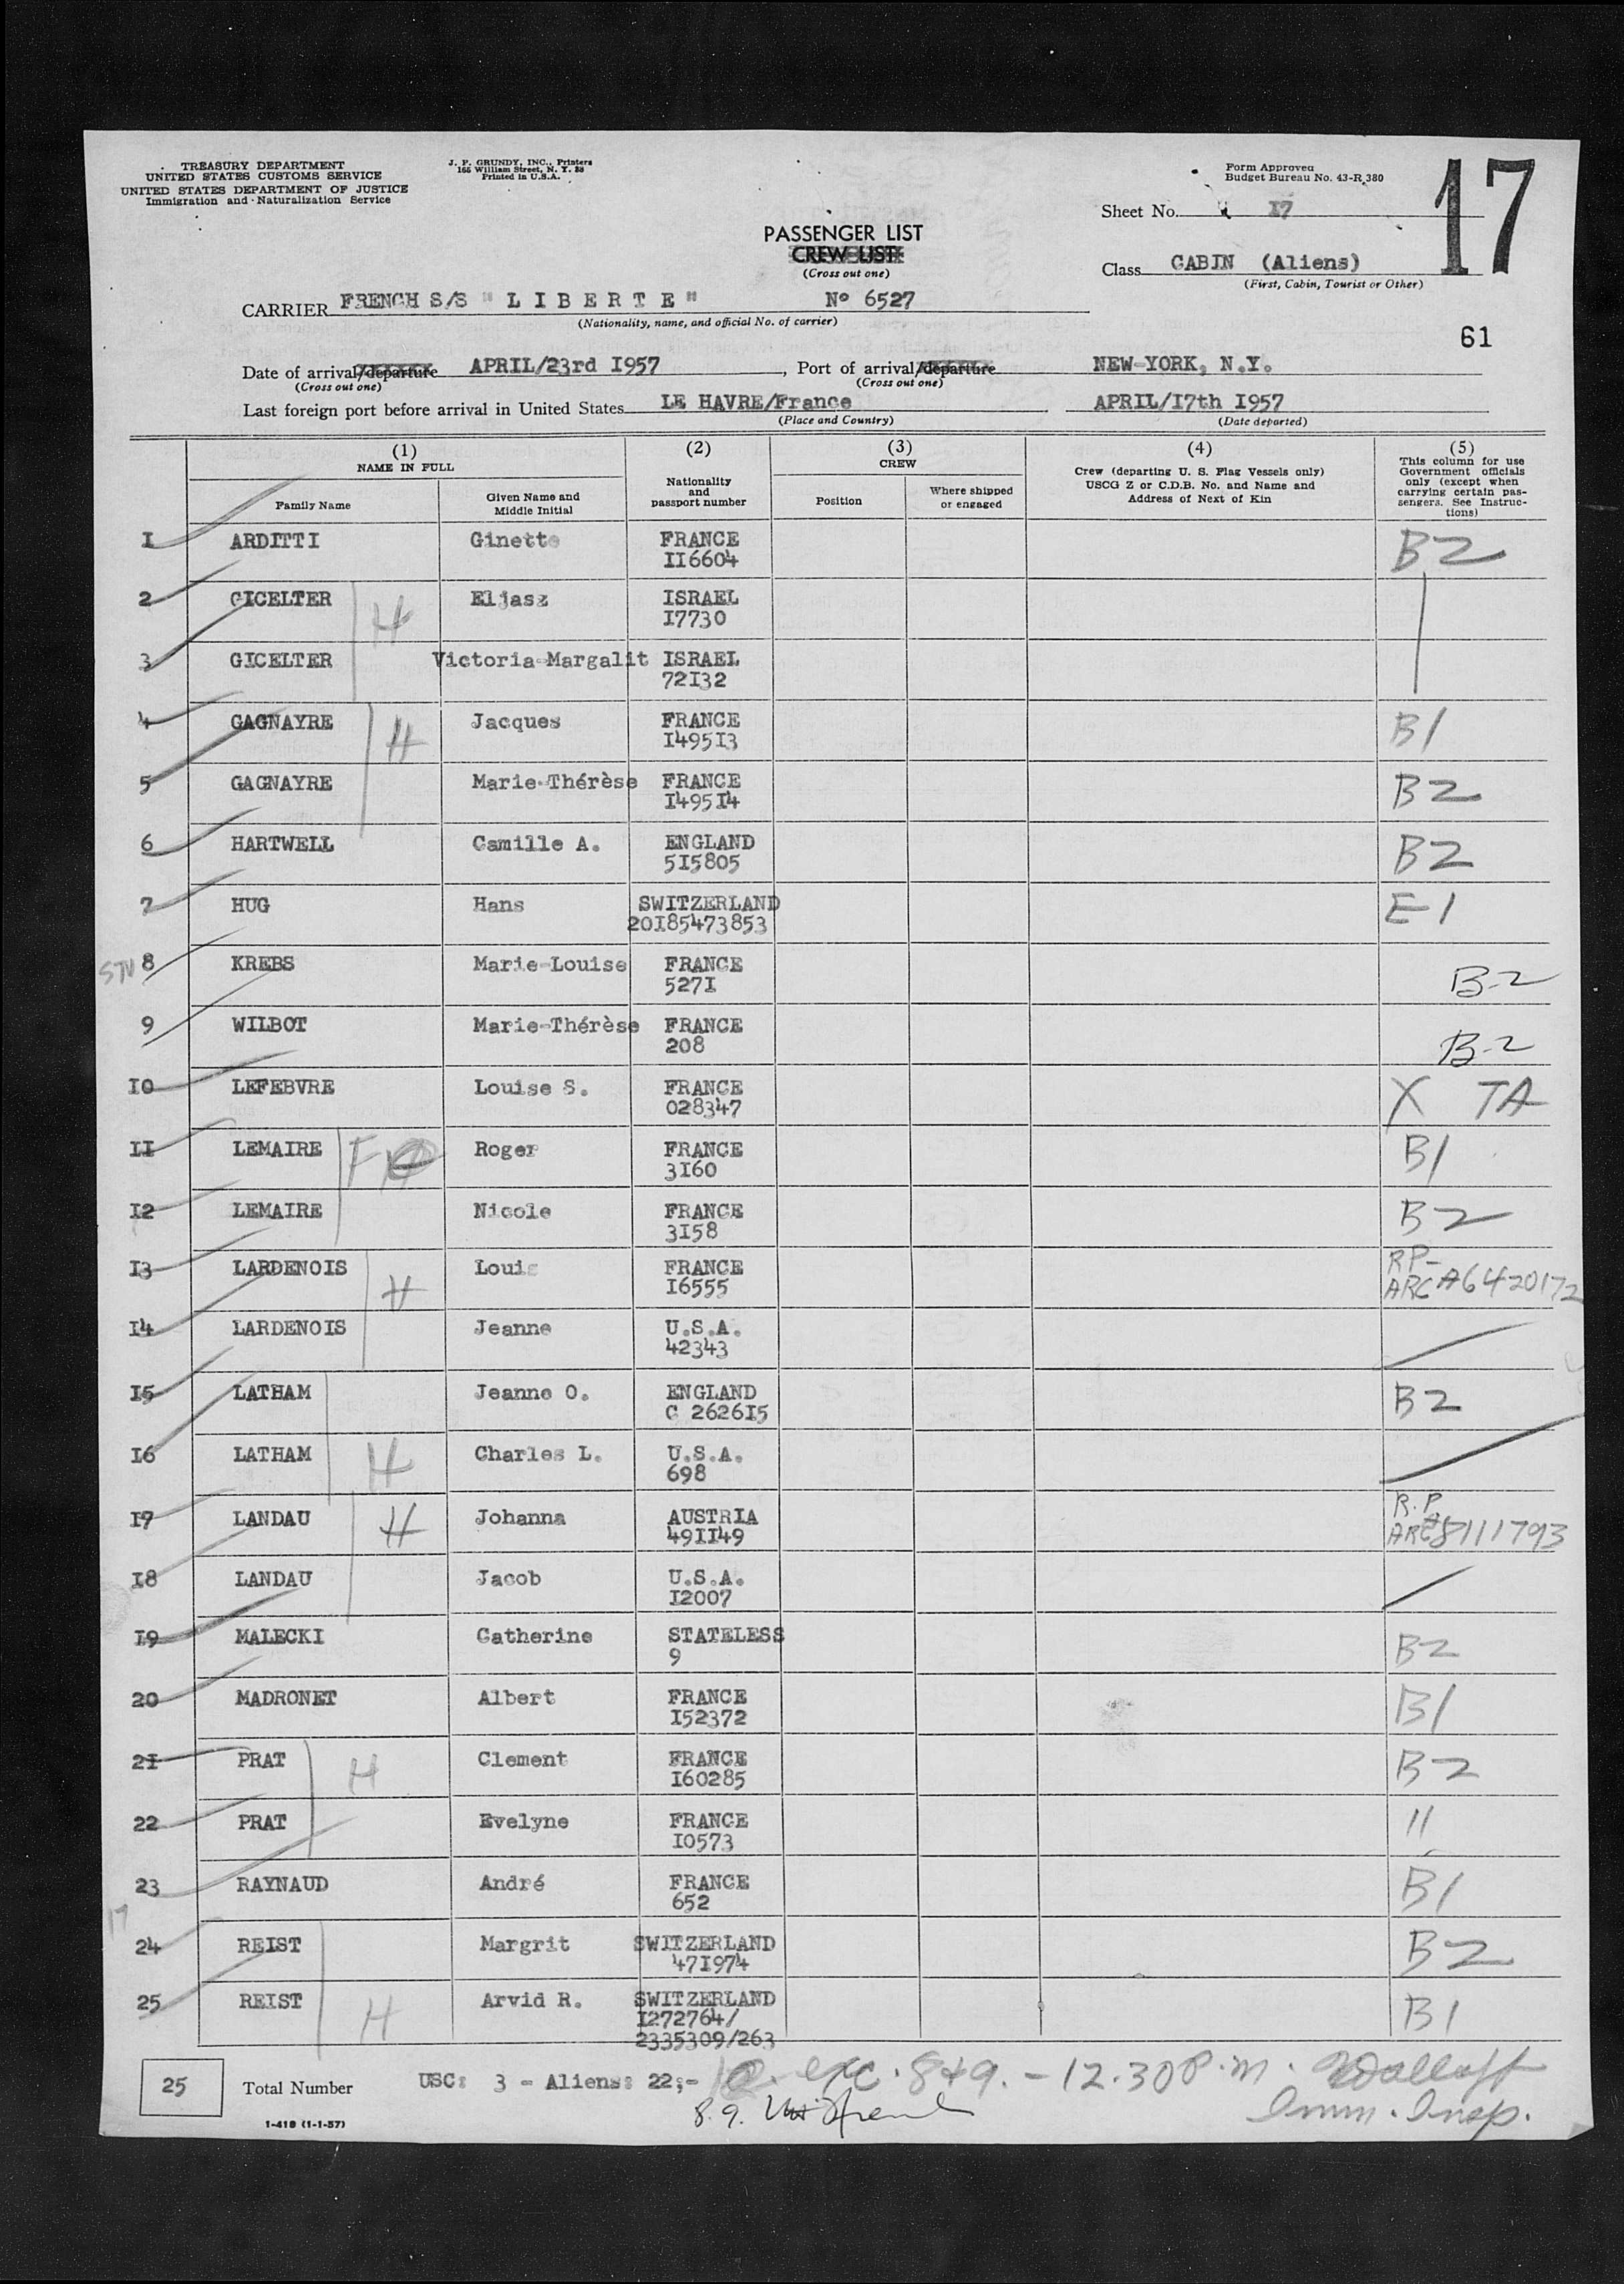 TREASURY DEPARTMENT
UNITED STATES CUSTOMS SERVICE
UNITED STATES DEPARTMENT OF JUSTICE
Immigration and Naturalization Service
J. F. GRUNDY, INC., Printers
166 William Street, N. Y. 38
Printed in U.S.A.
Form Approved
Budget Bureau No. 43-R 380
17
Sheet No. I7
PASSENGER LIST
CREW LIST
(Cross out one)
Class CABIN (Aliens)
(First, Cabin, Tourist or Other)
CARRIER FRENCH S/S " L I B E R T E " Nº 6527
(Nationality, name, and official No. of carrier)
61
Date of arrival/departure APRIL/23rd I957, Port of arrival/departure NEW-YORK, N.Y.
(Cross out one) (Cross out one)
Last foreign port before arrival in United States LE HAVRE/France APRIL/I7th I957
(Place and Country) (Date departed)
(1) NAME IN FULL
Family Name
Given Name and Middle Initial
(2) Nationality and passport number
(3) CREW
Position
Where shipped or engaged
(4) Crew (departing U. S. Flag Vessels only) USCG Z or C.D.B. No. and Name and Address of Next of Kin
(5) This column for use Government officials only (except when carrying certain passengers. See Instructions)
I ARDITTI Ginette FRANCE B2
II6604
2 GICELTER H Eljasz ISRAEL
I7730
3 GICELTER Victoria-Margalit ISRAEL
72I32
4 GAGNAYRE H Jacques FRANCE B1
I495I3
5 GAGNAYRE Marie-Thérèse FRANCE B2
I495I4
6 HARTWELL Camille A. ENGLAND B2
5I5805
7 HUG Hans SWITZERLAND E1
20I85473853
8 KREBS Marie-Louise FRANCE B-2
527I
9 WILBOT Marie-Thérèse FRANCE B-2
208
I0 LEFEBVRE Louise S. FRANCE X TA
028347
II LEMAIRE Roger FRANCE B1
3I60
I2 LEMAIRE Nicole FRANCE B2
3I58
I3 LARDENOIS H Louis FRANCE RP-
I6555 ARC A6420172
I4 LARDENOIS Jeanne U.S.A.
42343
I5 LATHAM Jeanne O. ENGLAND B2
C 2626I5
I6 LATHAM H Charles L. U.S.A.
698
I7 LANDAU H Johanna AUSTRIA R.P.
49II49 ARC A8111793
I8 LANDAU Jacob U.S.A.
I2007
I9 MALECKI Catherine STATELESS B2
9
20 MADRONET Albert FRANCE B1
I52372
2I PRAT H Clement FRANCE B2
I60285
22 PRAT Evelyne FRANCE 11
I0573
23 RAYNAUD André FRANCE B1
652
24 REIST Margrit SWITZERLAND B2
47I974
25 REIST H Arvid R. SWITZERLAND B1
I272764/
2335309/263
25 Total Number USC: 3 - Aliens: 22;- exc. 8+9. - 12.30 P.m.
8.9. Imm. Insp.
1-418 (1-1-57)